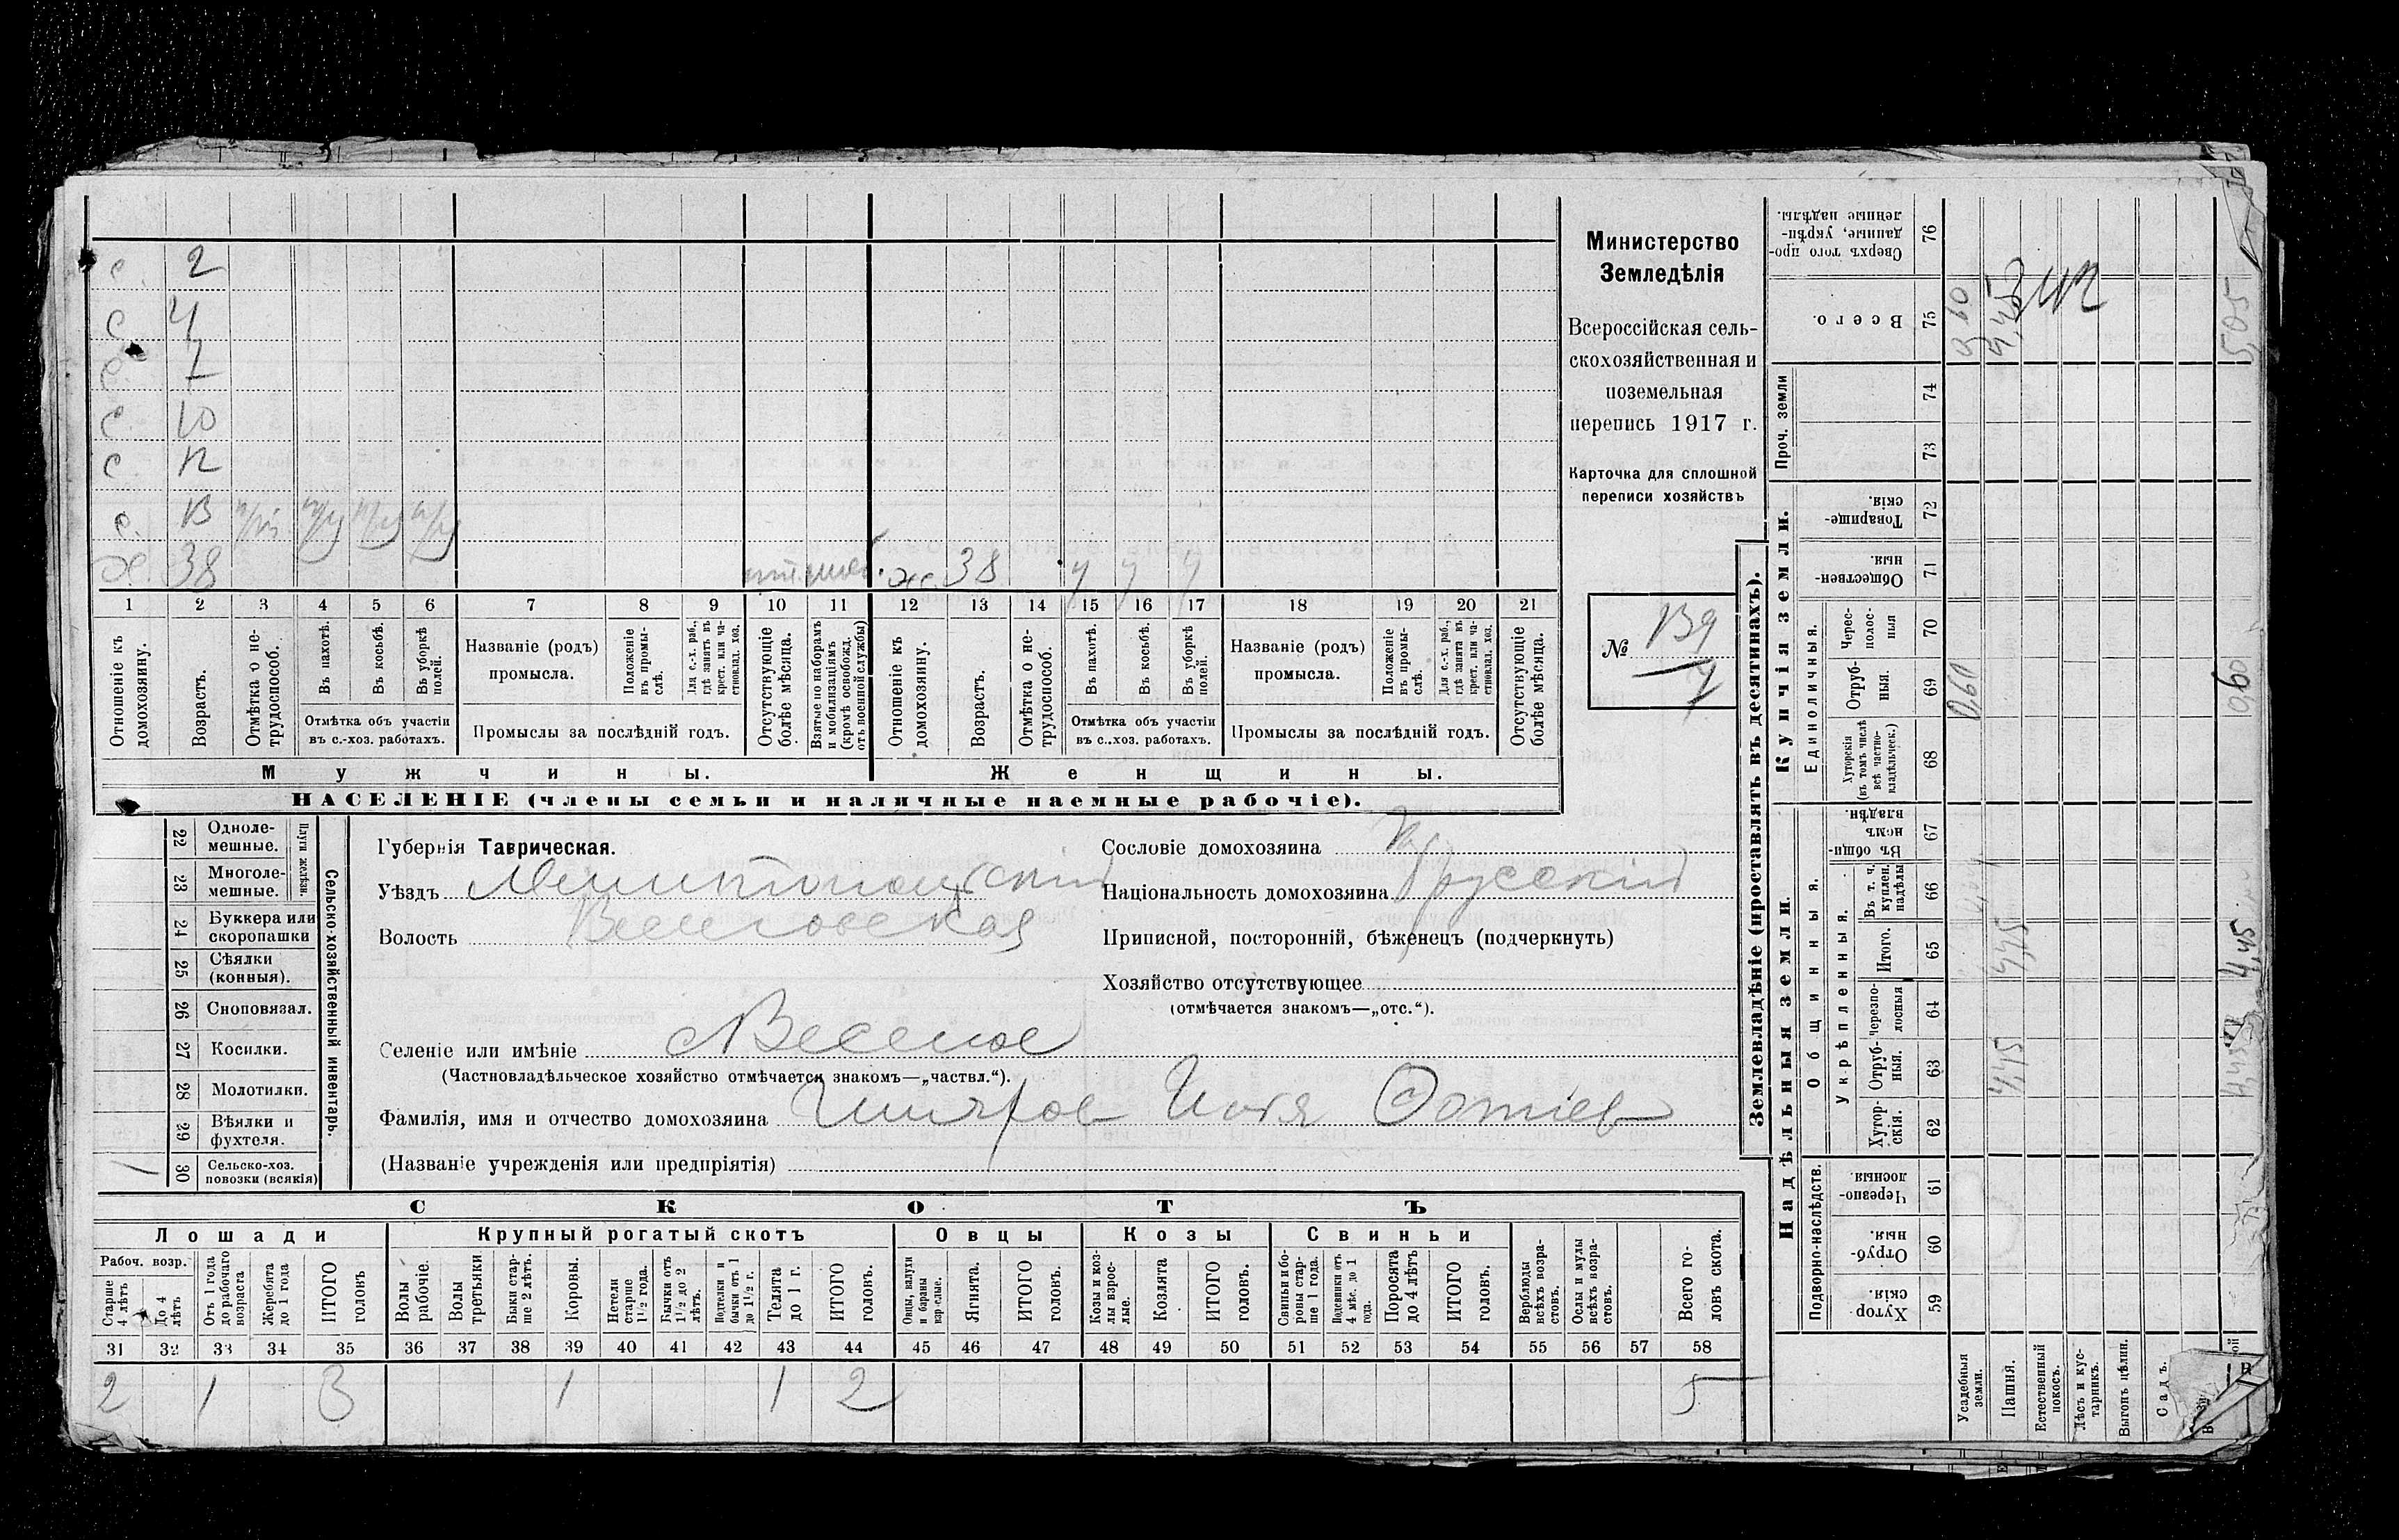 с. 2
с. 4
с. 7
с. 10
с. 12
с. 13 п/р п/р п/р п/р
х. 38 ж. 38 у у у
1 2 3 4 5 6 7 8 9 10 11 12 13 14 15 16 17 18 19 20 21
Отношеніе къ домохозяину.
Возрастъ.
Отмѣтка о нетрудоспособ.
Въ пахотѣ.
Въ косьбѣ.
Въ уборкѣ полей.
Отмѣтка объ участіи
въ с.-хоз. работахъ.
Названіе (родъ)
промысла.
Положеніе въ промыслѣ.
Для с.-х. раб., гдѣ занятъ въ крест. или частновлад. хоз.
Промыслы за послѣдній годъ.
Отсутствующіе болѣе мѣсяца.
Взятые по наборамъ и мобилизаціямъ (кромѣ освобожд. отъ военной службы)
Отношеніе къ домохозяину.
Возрастъ.
Отмѣтка о нетрудоспособ.
Въ пахотѣ.
Въ косьбѣ.
Въ уборкѣ полей.
Отмѣтка объ участіи
въ с.-хоз. работахъ.
Названіе (родъ)
промысла.
Положеніе въ промыслѣ.
Для с.-х. раб., гдѣ занята въ крест. или частновлад. хоз.
Промыслы за послѣдній годъ.
Отсутствующіе болѣе мѣсяца.
Мужчины. Женщины.
НАСЕЛЕНІЕ (члены семьи и наличные наемные рабочіе).
Министерство
Земледѣлія
Всероссійская сель-
скохозяйственная и
поземельная
перепись 1917 г.
Карточка для сплошной
переписи хозяйствъ
№ 139
Сельско-хозяйственный инвентарь.
Плуги желѣзн.
22 Однолемешные.
23 Многолемешные.
24 Буккера или скоропашки
25 Сѣялки (конныя).
26 Сноповязал.
27 Косилки.
28 Молотилки.
29 Вѣялки и фухтеля.
30 Сельско-хоз. повозки (всякія)
Губернія Таврическая.
Уѣздъ Мелитопольскій
Волость Веселовская
Селеніе или имѣніе Веселое
(Частновладѣльческое хозяйство отмѣчается знакомъ—„частвл.“).
Фамилія, имя и отчество домохозяина Илья Фотіев
(Названіе учрежденія или предпріятія)
Сословіе домохозяина кр
Національность домохозяина русскій
Приписной, посторонній, бѣженецъ (подчеркнуть)
Хозяйство отсутствующее
(отмѣчается знакомъ—„отс.“).
СКОТЪ
Лошади Крупный рогатый скотъ Овцы Козы Свиньи
Рабоч. возр.
Старше 4 лѣтъ
До 4 лѣтъ
Отъ 1 года до рабочаго возраста
Жеребята до 1 года
ИТОГО головъ
Волы рабочіе.
Волы третьяки
Быки старше 2 лѣтъ.
Коровы.
Нетели старше 1½ года.
Бычки отъ 1½ до 2 лѣтъ.
Подтелки и бычки отъ 1 до 1½ г.
Телята до 1 г.
ИТОГО головъ.
Овцы, валухи и бараны взрослые.
Ягнята.
ИТОГО головъ.
Козы и козлы взрослые.
Козлята
ИТОГО головъ.
Свиньи и боровы старше 1 года.
Подсвинки отъ 4 мѣс. до 1 года.
Поросята до 4 лѣтъ
ИТОГО головъ.
Верблюды всѣхъ возрастовъ.
Ослы и мулы всѣхъ возрастовъ.
Всего головъ скота.
31 32 33 34 35 36 37 38 39 40 41 42 43 44 45 46 47 48 49 50 51 52 53 54 55 56 57 58
2 1 3 1 1 2 5
Землевладѣніе (проставлять въ десятинахъ).
Надѣльныя земли. Купчія земли.
Подворно-наслѣдств.
Общинныя.
Укрѣпленныя.
Единоличныя.
Проч. земли
Хуторскія. 59
Отрубныя. 60
Черезполосныя 61
Хуторскія. 62
Отрубныя. 63
Черезполосныя 64
Итого. 65
Въ т. ч. куплен. надѣлы 66
Въ общинномъ владѣн. 67
Хуторскія (въ томъ числѣ всѣ частновладѣльческ.) 68
Отрубныя. 69
Черезполосныя 70
Общественныя. 71
Товарищескія. 72
73
74
Всего. 75
Сверхъ того проданные, укрѣпленные надѣлы. 76
Усадебныя земли. 0,60 0,60
Пашня. 4,45 4,45 4,45
Естественный покосъ.
Лѣсъ и кустарникъ.
Выгонъ цѣлин.
Садъ.
4,45 0,60 5,05